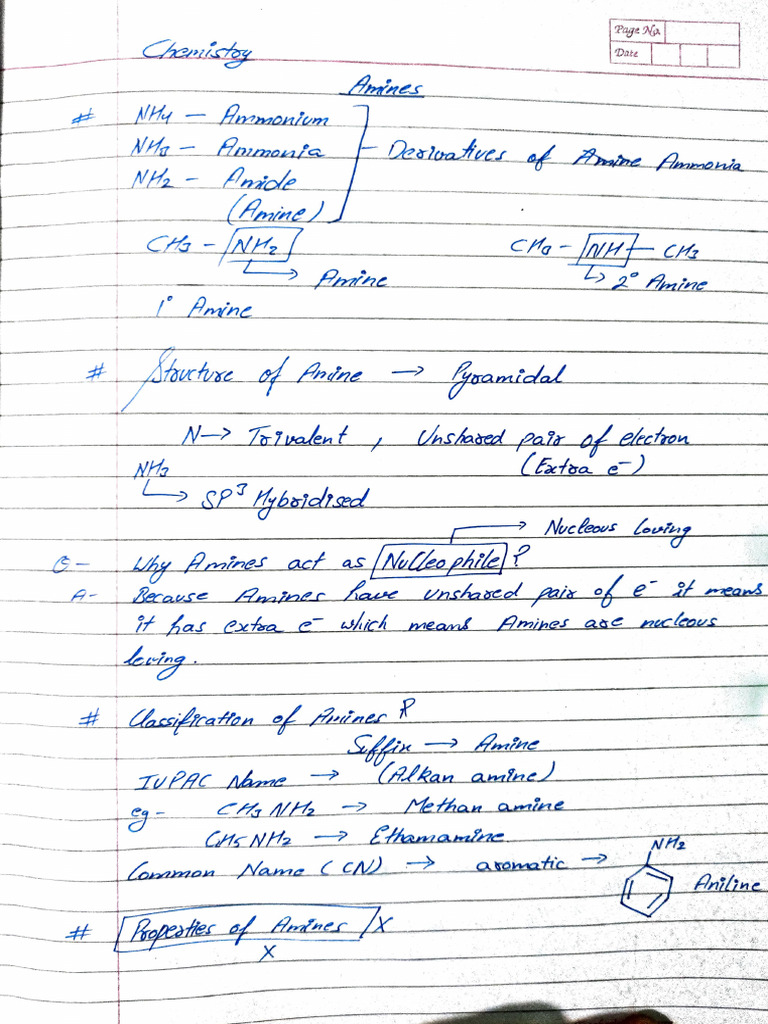 Page No.
Date
Chemistry
Amines
# NH4 — Ammonium
NH3 — Ammonia — Derivatives of Amine Ammonia
NH2 — Amide
(Amine)
CH3 — NH2 CH3 — NH — CH3
→ Amine → 2° Amine
1° Amine
# Structure of Amine → Pyramidal
N → Trivalent , Unshared pair of electron
NH3 (Extra e⁻)
→ SP³ Hybridised
→ Nucleous loving
Q- Why Amines act as Nucleophile ?
A- Because Amines have unshared pair of e⁻ it means
it has extra e⁻ which means Amines are nucleous
loving.
# Classification of Amines
Suffix → Amine
IUPAC Name → (Alkan amine)
eg- CH3 NH2 → Methan amine
CH5 NH2 → Ethamamine
Common Name (CN) → aromatic → NH2 Aniline
# Properties of Amines X
X